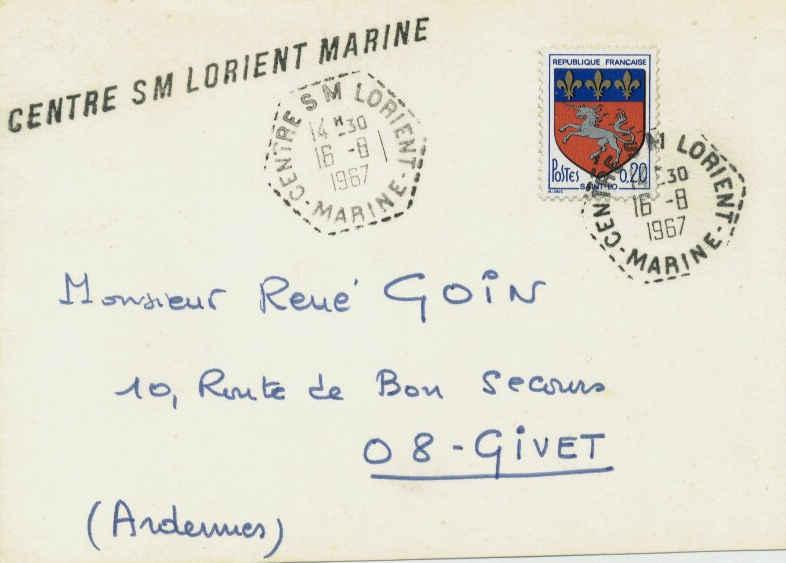 CENTRE SM LORIENT MARINE
CENTRE SM LORIENT
14H30
16 -8
1967
- MARINE -
REPUBLIQUE FRANÇAISE
Postes 0,20
SAINT-LO
CENTRE SM LORIENT
-30
16 -8
1967
- MARINE -
Monsieur René GOIN
10, Route de Bon Secours
08-GIVET
(Ardennes)